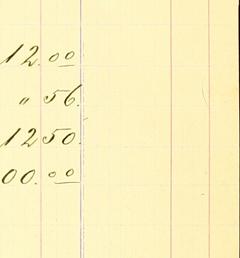 12.00
" 56.
1250.
00.00